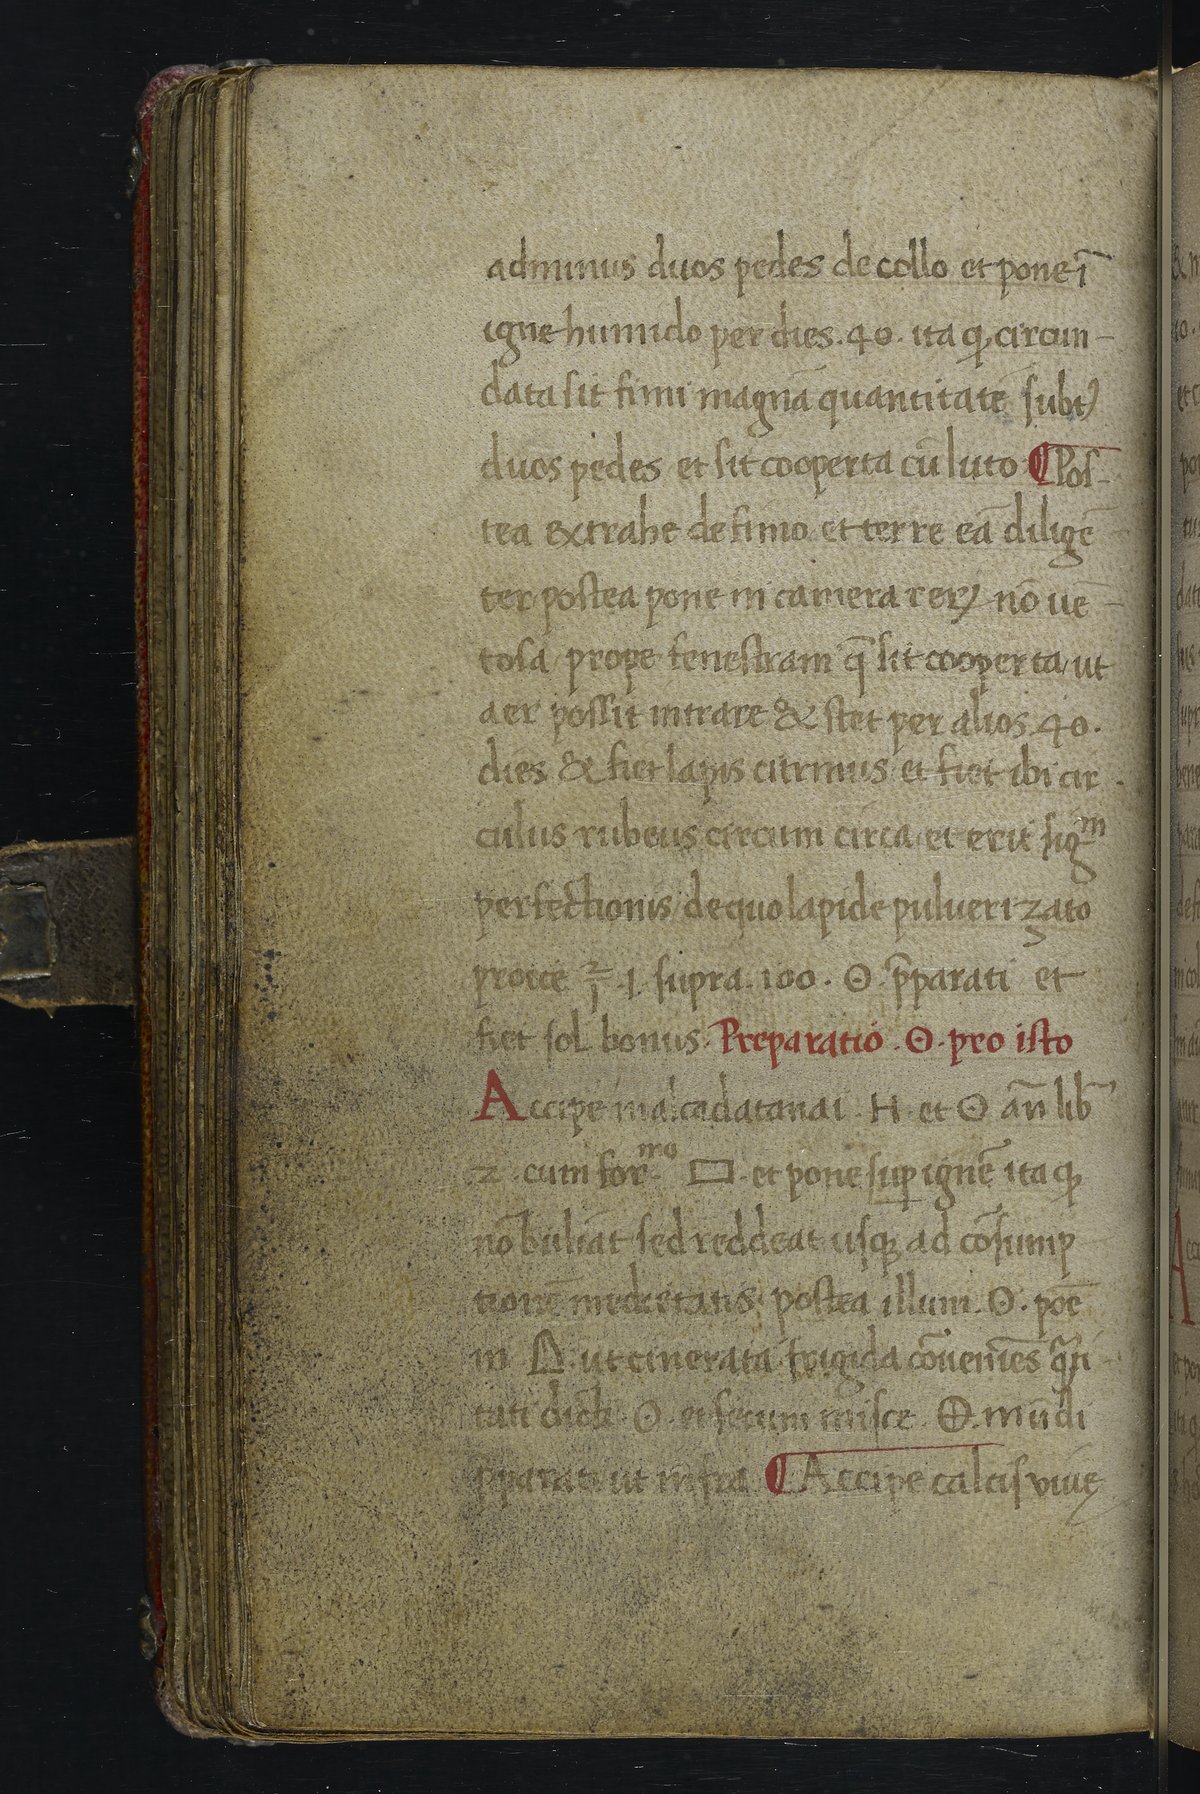 adminus duos pedes de collo et pone ī
igne humido per dies .40. ita ꝙ circun-
data sit fimi magnā quantitatē subt⁊
duos pedes et sit cooperta cū luto ¶ Pos-
tea extrahe de fimo et terre eā diligē
ter postea pone in camera non uē-
tosa prope fenestram q̄ sit cooperta, ut
aer possit intrare & stet per alios .40.
dies & fiet lapis citrinus et fiet ibi cir-
culus rubeus circum circa, et erit sigᵐ
perfectionis, de quo lapide puluerizato
proice .1. supra .100. ʘ. p̄parati et
fiet sol bonus. Preparatio .ʘ. pro isto
Accipe H. et ʘ añ lib̄
2. cum forᵐᵒ ▭. et pone sup ignē ita ꝙ
nō buliat sed reddeat usq; ad cōsump-
tionē medietatis. postea illum .ʘ. poē
in ut cinerata frigida cōueniēs q̄ti-
tati dicti ʘ. et secum misce .🜨. mūdi
p̄parati ut infra ¶ Accipe calcis viuę